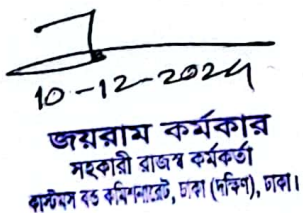 10-12-2024
জয়রাম কর্মকার
সহকারী রাজস্ব কর্মকর্তা
কাস্টমস বন্ড কমিশনারেট, ঢাকা (দক্ষিণ), ঢাকা।